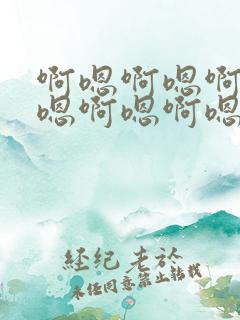 啊嗯啊嗯啊
嗯啊嗯啊嗯
经纪老於
未经同意禁止转载